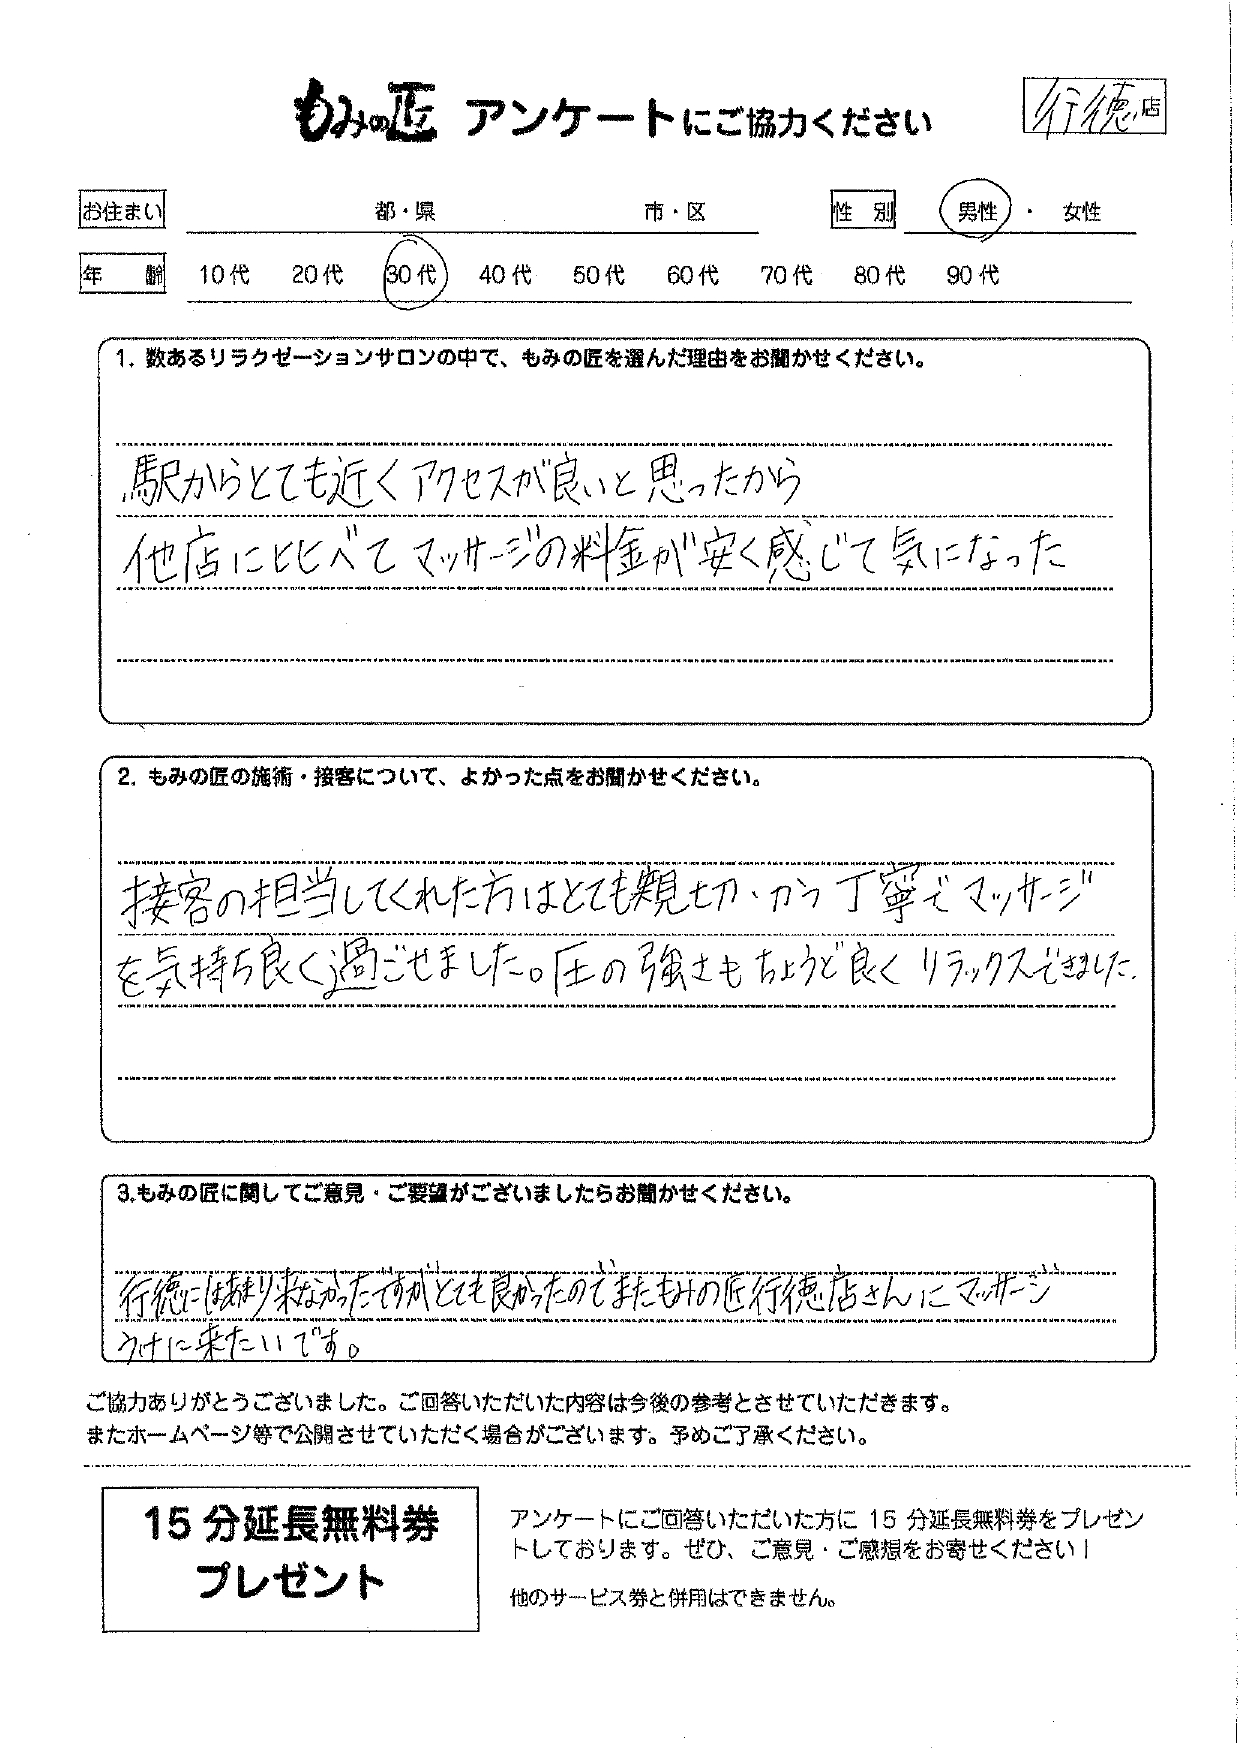 もみの匠 アンケートにご協力ください
行徳店
お住まい 都・県 市・区 性別 男性・女性
年齢 10代 20代 30代 40代 50代 60代 70代 80代 90代
1. 数あるリラクゼーションサロンの中で、もみの匠を選んだ理由をお聞かせください。
駅からとても近くアクセスが良いと思ったから
他店に比べてマッサージの料金が安く感じて気になった
2. もみの匠の施術・接客について、よかった点をお聞かせください。
接客の担当してくれた方はとても親切、かつ丁寧でマッサージ
を気持ち良く過ごせました。圧の強さもちょうど良くリラックスできました。
3.もみの匠に関してご意見・ご要望がございましたらお聞かせください。
行徳にはあまり来なかったですがとても良かったのでまたもみの匠行徳店さんにマッサージ
うけに来たいです。
ご協力ありがとうございました。ご回答いただいた内容は今後の参考とさせていただきます。
またホームページ等で公開させていただく場合がございます。予めご了承ください。
15分延長無料券
プレゼント
アンケートにご回答いただいた方に 15 分延長無料券をプレゼン
トしております。ぜひ、ご意見・ご感想をお寄せください！
他のサービス券と併用はできません。